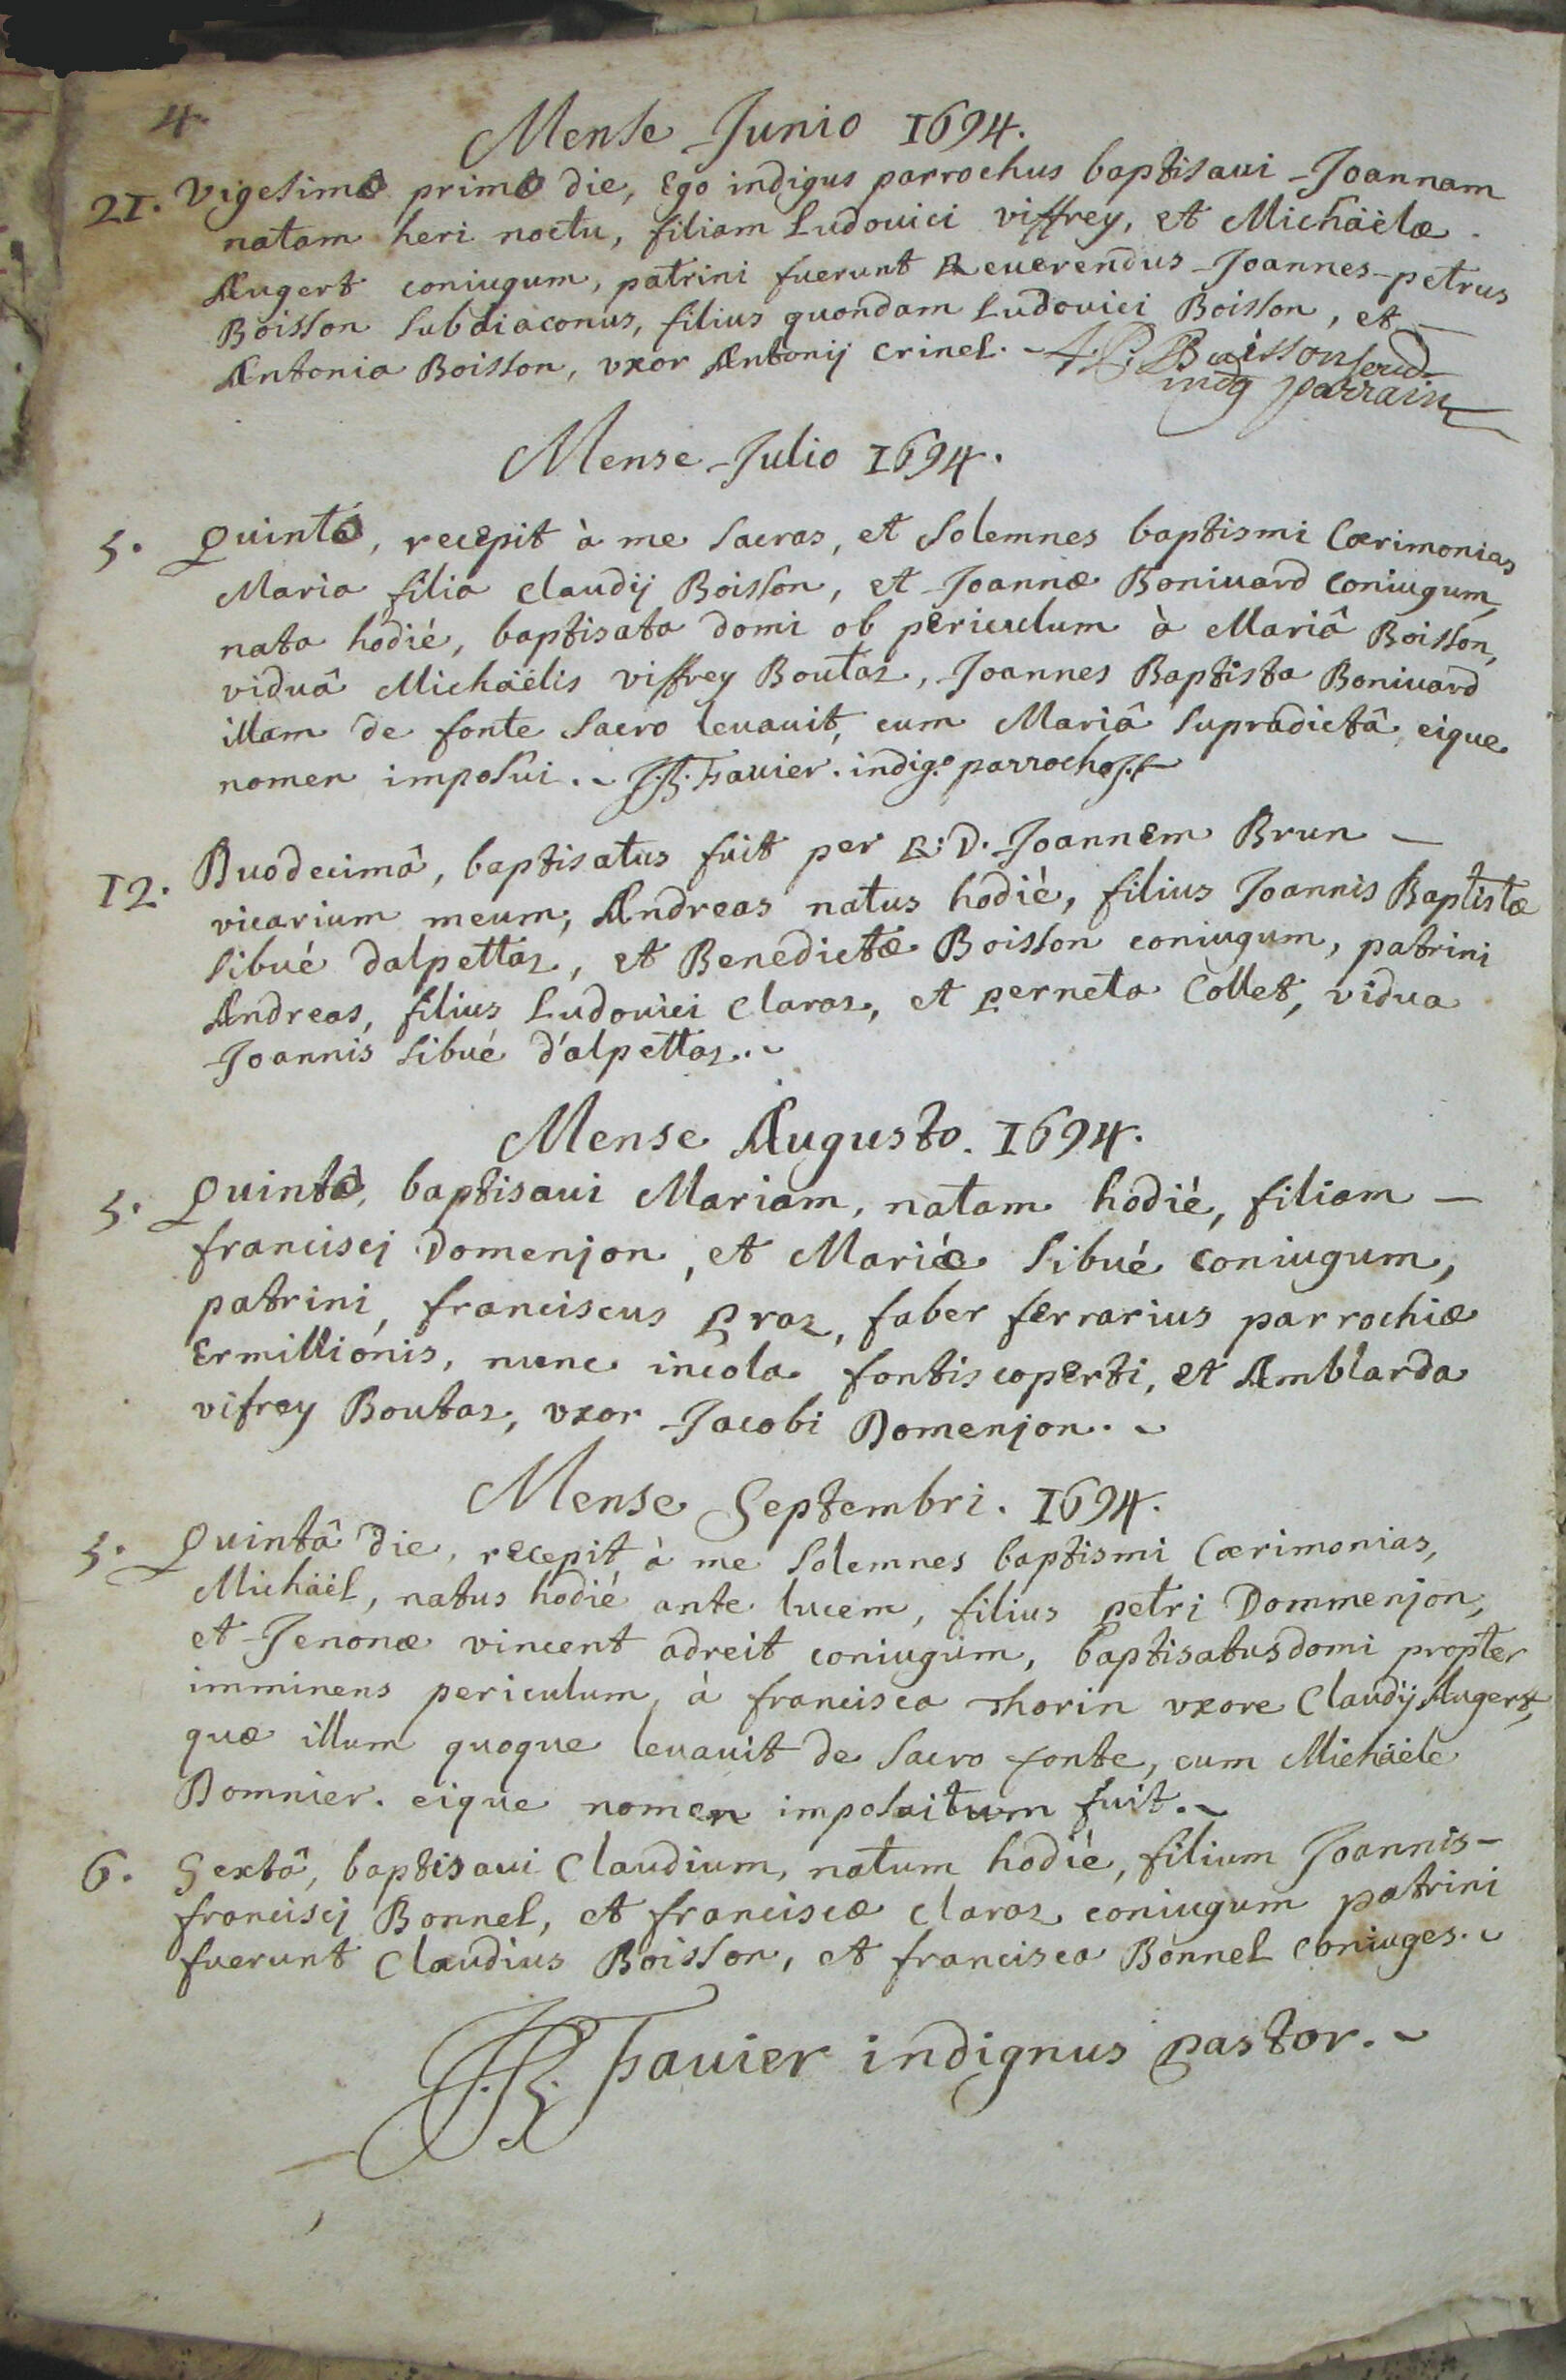 4.
Mense Junio 1694.
21. Vigesima prima die, Ego indigus parrochus baptisaui Joannam
natam heri noctu, filiam Ludouici viffrey, et Michäelæ
Augert coniugum, patrini fuerunt Reuerendus Joannes-petrus
Boisson subdiaconus, filius quondam Ludouici Boisson, et
Antonia Boisson, vxor Antonij Crinel. J. P. Boisson
indig parrain
Mense Julio 1694.
5. Quintâ, recepit à me sacras, et solemnes baptismi Cœrimonias
Maria filia Claudij Boisson, et Joannæ Boniuard coniugum,
nata hodié, baptisata domi ob periculum à Mariâ Boisson,
viduâ Michäelis viffrey Boutaz, Joannes Baptista Boniuard
illam de fonte sacro leuauit, cum Mariâ supradictâ, eique
nomen imposui. J.B. Fauier. indig.s parrochus
12. Duodecimâ, baptisatus fuit per R. D. Joannem Brun
vicarium meum, Andreas natus hodié, filius Joannis Baptistæ
sibué dalpettaz, et Benedictæ Boisson coniugum, patrini
Andreas, filius Ludouici Claraz, et perneta Collet, vidua
Joannis sibué d'alpettaz.
Mense Augusto. 1694.
5. Quintâ, baptisaui Mariam, natam hodié, filiam
francisci Domenjon, et Mariæ sibué coniugum,
patrini, franciscus Praz, faber ferrarius parrochiæ
Ermillionis, nunc incola fontiscoperti, et Amblarda
vifrey Boutaz, vxor Jacobi Domenjon.
Mense Septembri. 1694.
5. Quintâ die, recepit à me solemnes baptismi Cœrimonias,
Michäel, natus hodié ante lucem, filius petri Dommenjon,
et Jenonæ vincent adreit coniugum, baptisatus domi propter
imminens periculum, à francisca Thorin vxore Claudij Augert,
quæ illum quoque leuauit de sacro fonte, cum Michäele
Domnier. eique nomen impositum fuit.
6. Sextâ, baptisaui Claudium, natum hodié, filium Joannis-
francisci Bonnel, et franciscæ Claraz coniugum patrini
fuerunt Claudius Boisson, et francisca Bonnel coniuges.
J.B. Fauier indignus pastor.